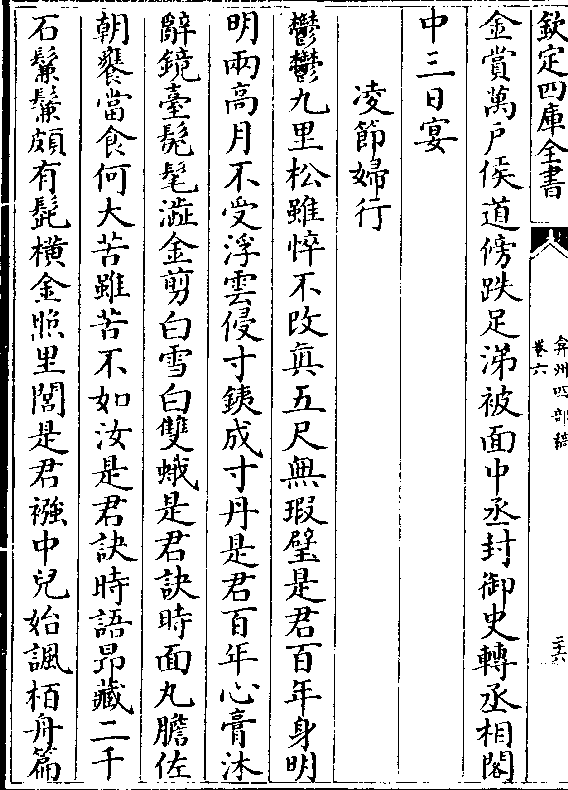 欽定四庫全書
弇州四部稿
卷六
二六
金賞萬戶侯道傍跌足涕被面中丞封御史轉丞相閣
中三日宴
凌節婦行
鬱鬱九里松雖悴不改真五尺無瑕璧是君百年身明
明兩高月不受浮雲侵寸銕成寸丹是君百年心膏沐
辭鏡臺髡髦澁金剪白雪白雙蛾是君訣時面丸膽佐
朝饔當食何大苦雖苦不如汝是君訣時語昂藏二千
石鬑鬑頗有髭橫金照里閭是君襁中兒始諷栢舟篇